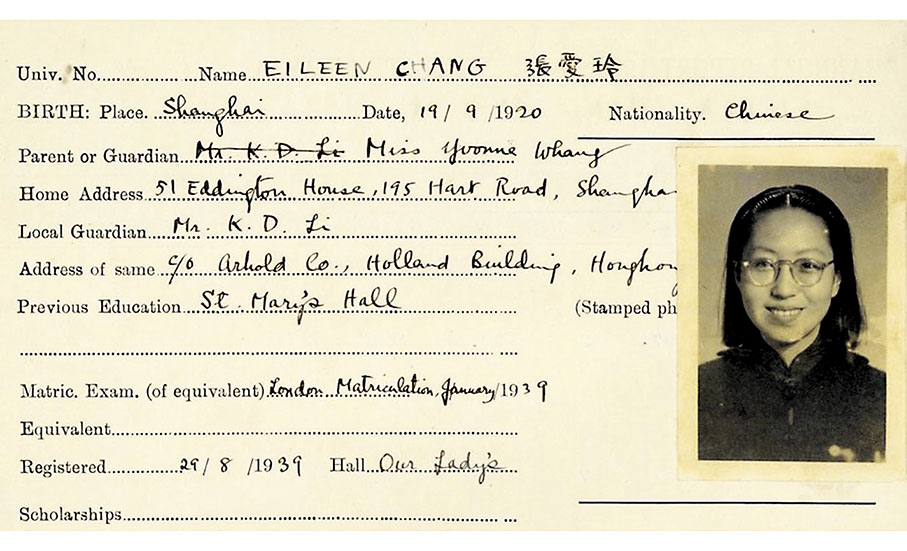 Univ. No. Name EILEEN CHANG 張愛玲
BIRTH: Place. Shanghai Date, 19/ 9 /1920 Nationality. Chinese
Parent or Guardian Mr. K. D. Li Miss Yvonne Whang
Home Address 51 Eddington House, 195 Hart Road, Shangha
Local Guardian Mr. K. D. Li
Address of same c/o Arhold Co., Holland Building, Hongkon
Previous Education St. Mary's Hall (Stamped ph
Matric. Exam. (of equivalent) London Matriculation, January/1939
Equivalent
Registered 29/ 8 /1939 Hall Our Lady's
Scholarships